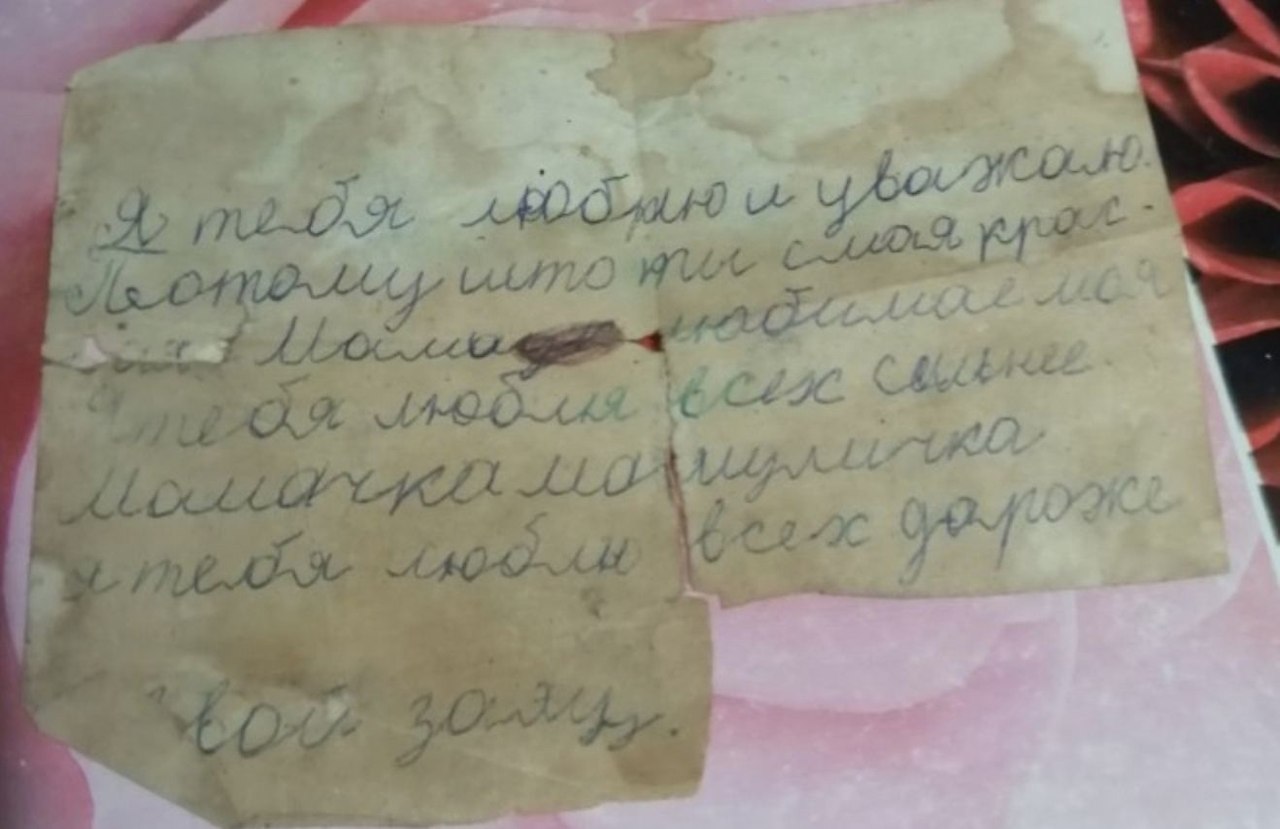 Я тебя люблю и уважаю.
Потому што ты смая крас-
Мама любимае моя
тебя любля всех сильнее.
Мамачка мамуличка
я тебя люблю всех дароже
вой заяц.